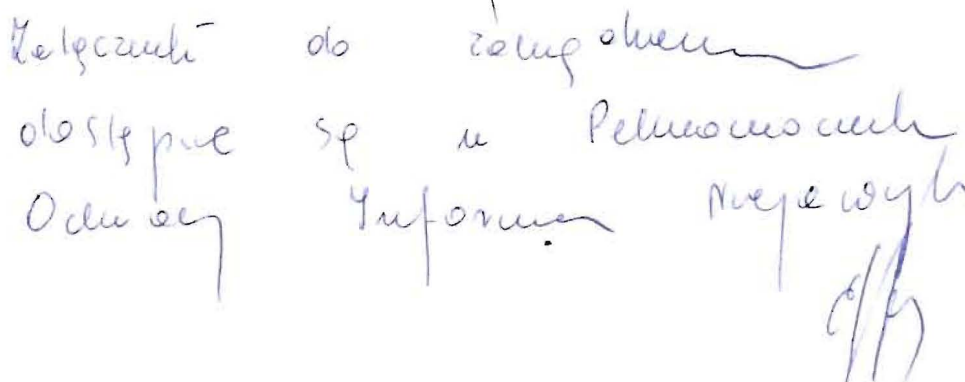 Załączniki do zarządzenia
dostępne są u Pełnomocnika
Ochrony Informacji Niejawnych